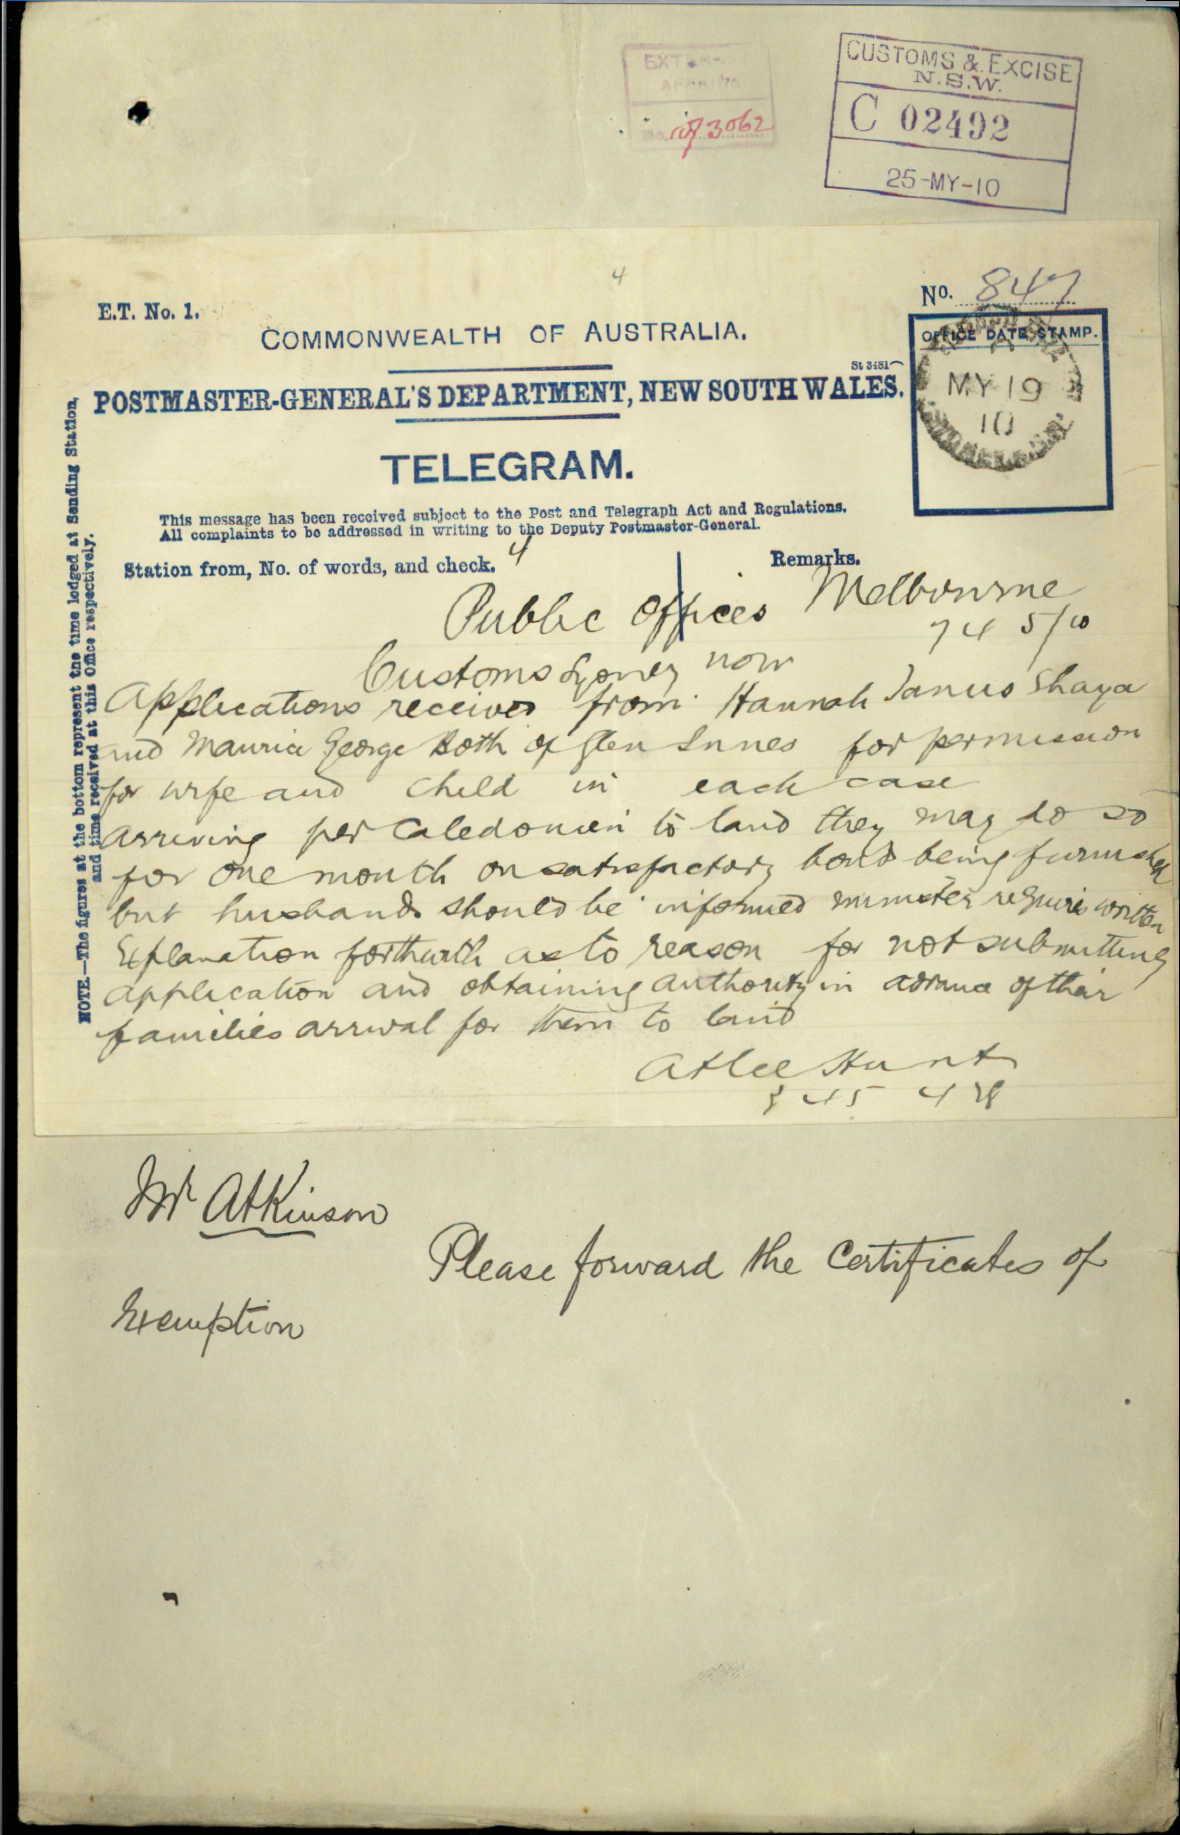 CUSTOMS & EXCISE
N.S.W.
C 02492
25-MY-10
3062
4
No. 847
E.T. No. 1.
COMMONWEALTH OF AUSTRALIA.
OFFICE DATE STAMP.
MY 19
10
St 3481
POSTMASTER-GENERAL'S DEPARTMENT, NEW SOUTH WALES.
TELEGRAM.
This message has been received subject to the Post and Telegraph Act and Regulations.
All complaints to be addressed in writing to the Deputy Postmaster-General.
Station from, No. of words, and check. 4
Remarks.
Public Offices Melbourne
74 5/10
Customs Sydney now
Applications received from Hannah Janus Shaya
and Maurice George Both of Glen Innes for permission
for wife and child in each case
arriving per Caledonien to land they may do so
for one month on satisfactory bond being furnished
but husbands should be informed minister requires written
Explanation forthwith as to reason for not submitting
application and obtaining authority in advance of their
families arrival for them to land
Atlee Hunt
NOTE.—The figures at the bottom represent the time lodged at Sending Station,
and time received at this Office respectively.
Mr Atkinson
Please forward the Certificates of
Exemption